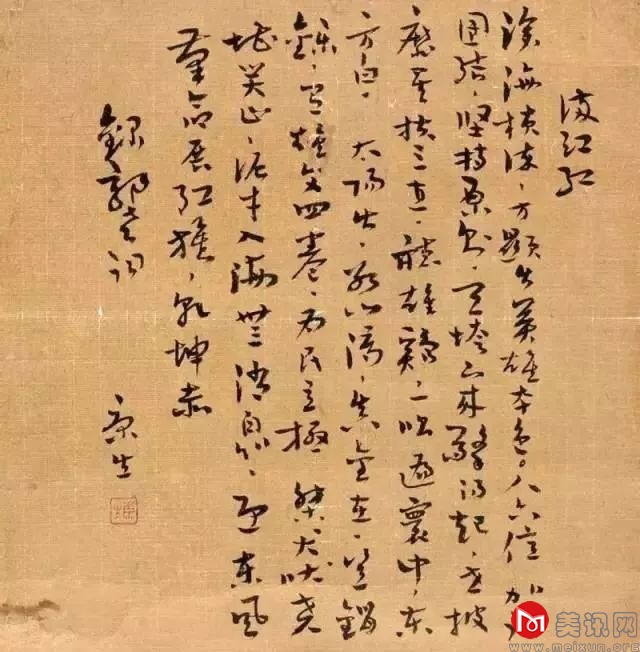 满江红
滄海横流、方顯出英雄本色。人六億、加
團结、坚持原則、天垮下来擎得起、世披
靡矣扶之直、聽雄鷄一唱遍寰中、東
方白。太陽出、冰山滴、真金在、豈銷
鑠、有雄文四卷、为民立極、桀犬吠堯
堪笑止、泥牛入海無消息、迎東風
革命展红旗、乾坤赤
録郭老词
康生
美讯网
www.meixun.org